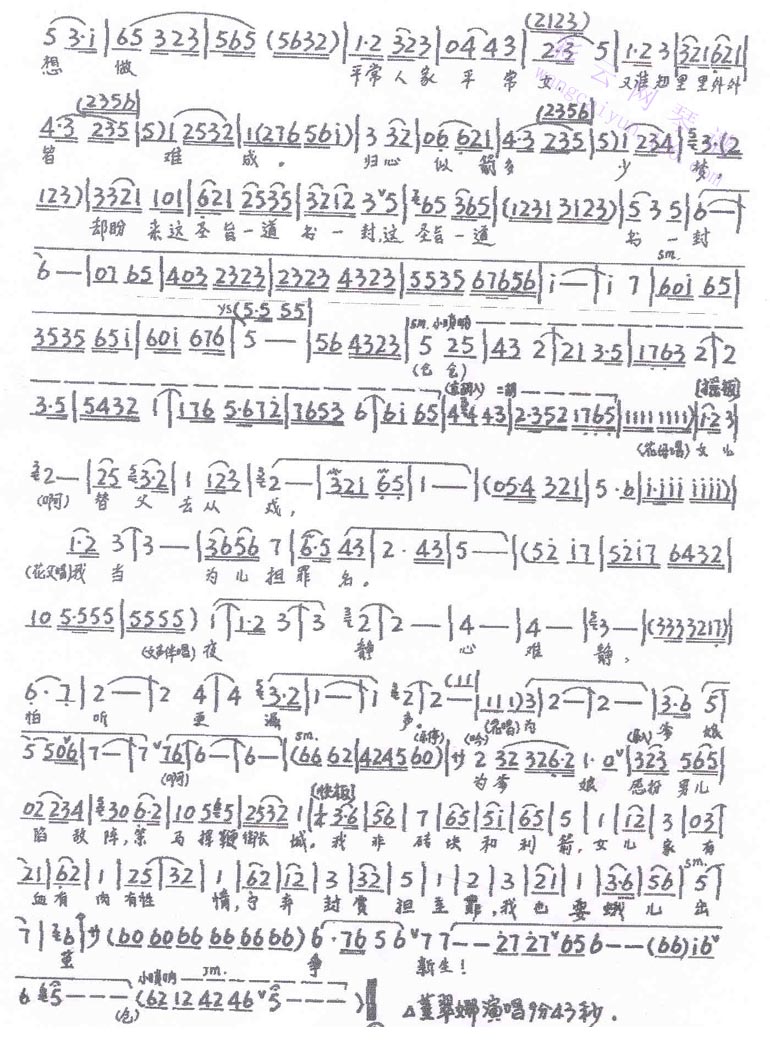 5 3·i | 65 323 | 565 (5632) | 1·2 323 | 04 43 | 23 5 | 1·2 3 | 321 621 |
(2123)
想 做 平常人家平常女 又谁知里里外外
4·3 235 | 5) i 2532 | 1 (276561) | 3 32 | 06 621 | 4·3 235 | 5) i 234 | 3·(2
(2356) (2356)
皆 难 成。 归心似箭多 少 梦,
123) | 3321 101 | 621 2535 | 3212 3 5 | 65 365 | (1231 3123) | 5 3 5 | 6 — |
却盼来这圣旨一道书一封,这圣旨一道 书一封
sm.
6 — | 07 65 | 403 2323 | 2323 4323 | 5535 67656 | i — | i 7 | 60i 65 |
ys (5·5 55
3535 65i | 60i 676 | 5 — | 56 4323 | 5 25 | 43 2 | 21 3·5 | 1763 2 | 2
sm. 小唢呐
(仓 仓)
二胡
3·5 | 5432 1 | 176 5·672 | 7653 6 | 6i 65 | 4 43 | 2·352 1765 | 1111 1111) | 1·2 3 |
(花母唱) 女儿
2 — | 25 3·2 | 1 123 | 2 — | 321 65 | 1 — | (05·4 321 | 5 · 6 | i·iii iiii) |
(啊) 替父去从 戎,
1·2 3 | 3 — | 3656 7 | 6·5 43 | 2 · 43 | 5 — | (52 i7 | 52i7 6432 |
(花父唱)我 当 为儿担罪名。
10 5·555 | 5555 ) i | 1·2 3 | 3 2 | 2 — | 4 — | 4 — | 3 — | (3333217) |
(女声伴唱) 夜 静 心 难 静,
6 · 7 | 2 — | 2 4 | 4 3·2 | 1 — | 1 2 | 2 — | 111 1) 3 | 2 — | 2 — | 3·6 5 |
怕 听 更 漏 声。 (花唱)为 爷娘
5 506 | 7 — | 7 76 | 6 — | 6 — | (66 62 | 4245 60) | サ 2 32 326·2 1·0 | 323 565 |
(啊) sm. 为爷 娘 愿扮男儿
[快板]
02 234 | 30 6·2 | 10 5 5 | 2532 1 | 3·6 | 56 | 7 | 65 | 5i | 65 | 5 | 1 | 12 | 3 | 03 |
陷敌阵,策马挥鞭御长城。我非砖块和利箭,女儿家有
21 | 62 | 1 | 25 | 32 | 1 | 62 | 12 | 3 | 32 | 5 | 1 | 2 | 3 | 21 | 1 | 3·6 | 56 | 5 |
sm.
血有肉有性情,宁弃封赏担重罪,我也要蛾儿出
7 | 6 | サ (60 6066 66 66 66 66) 6 · 76 5 6 7 7 — — 27 27 656 — — (66) i6
重 争 新生!
6 5 — — — (62 12 42 46 5 — — — )
小唢呐 sm.
(仓)
△董翠娜演唱9分43秒.